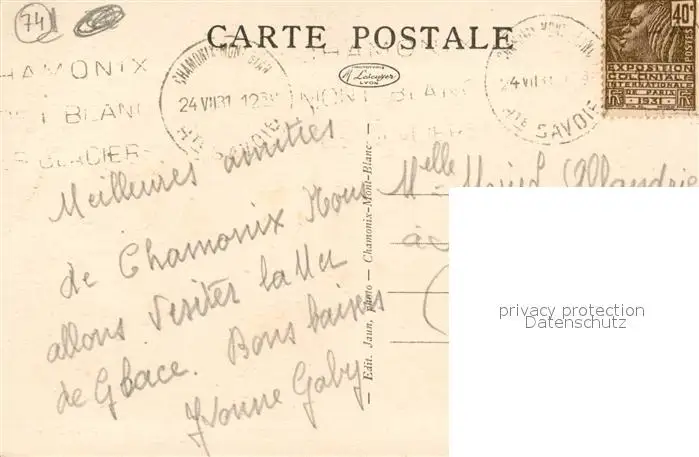 74
CARTE POSTALE
CHAMONIX MONT-BLANC
24 VII 31 12
HTE SAVOIE
CHAMONIX
MONT BLANC
GLACIERS
Lescuyer
LYON
24 VII 31
HTE SAVOIE
40c
POSTES
EXPOSITION
COLONIALE
INTERNATIONALE
DE PARIS
1931
Meilleures amitiés
de Chamonix Nous
allons visiter la Mer
de Glace. Bons baisers
Yvonne Gaby
Edit. Jaun, photo — Chamonix-Mont-Blanc —
Melle
à
privacy protection
Datenschutz